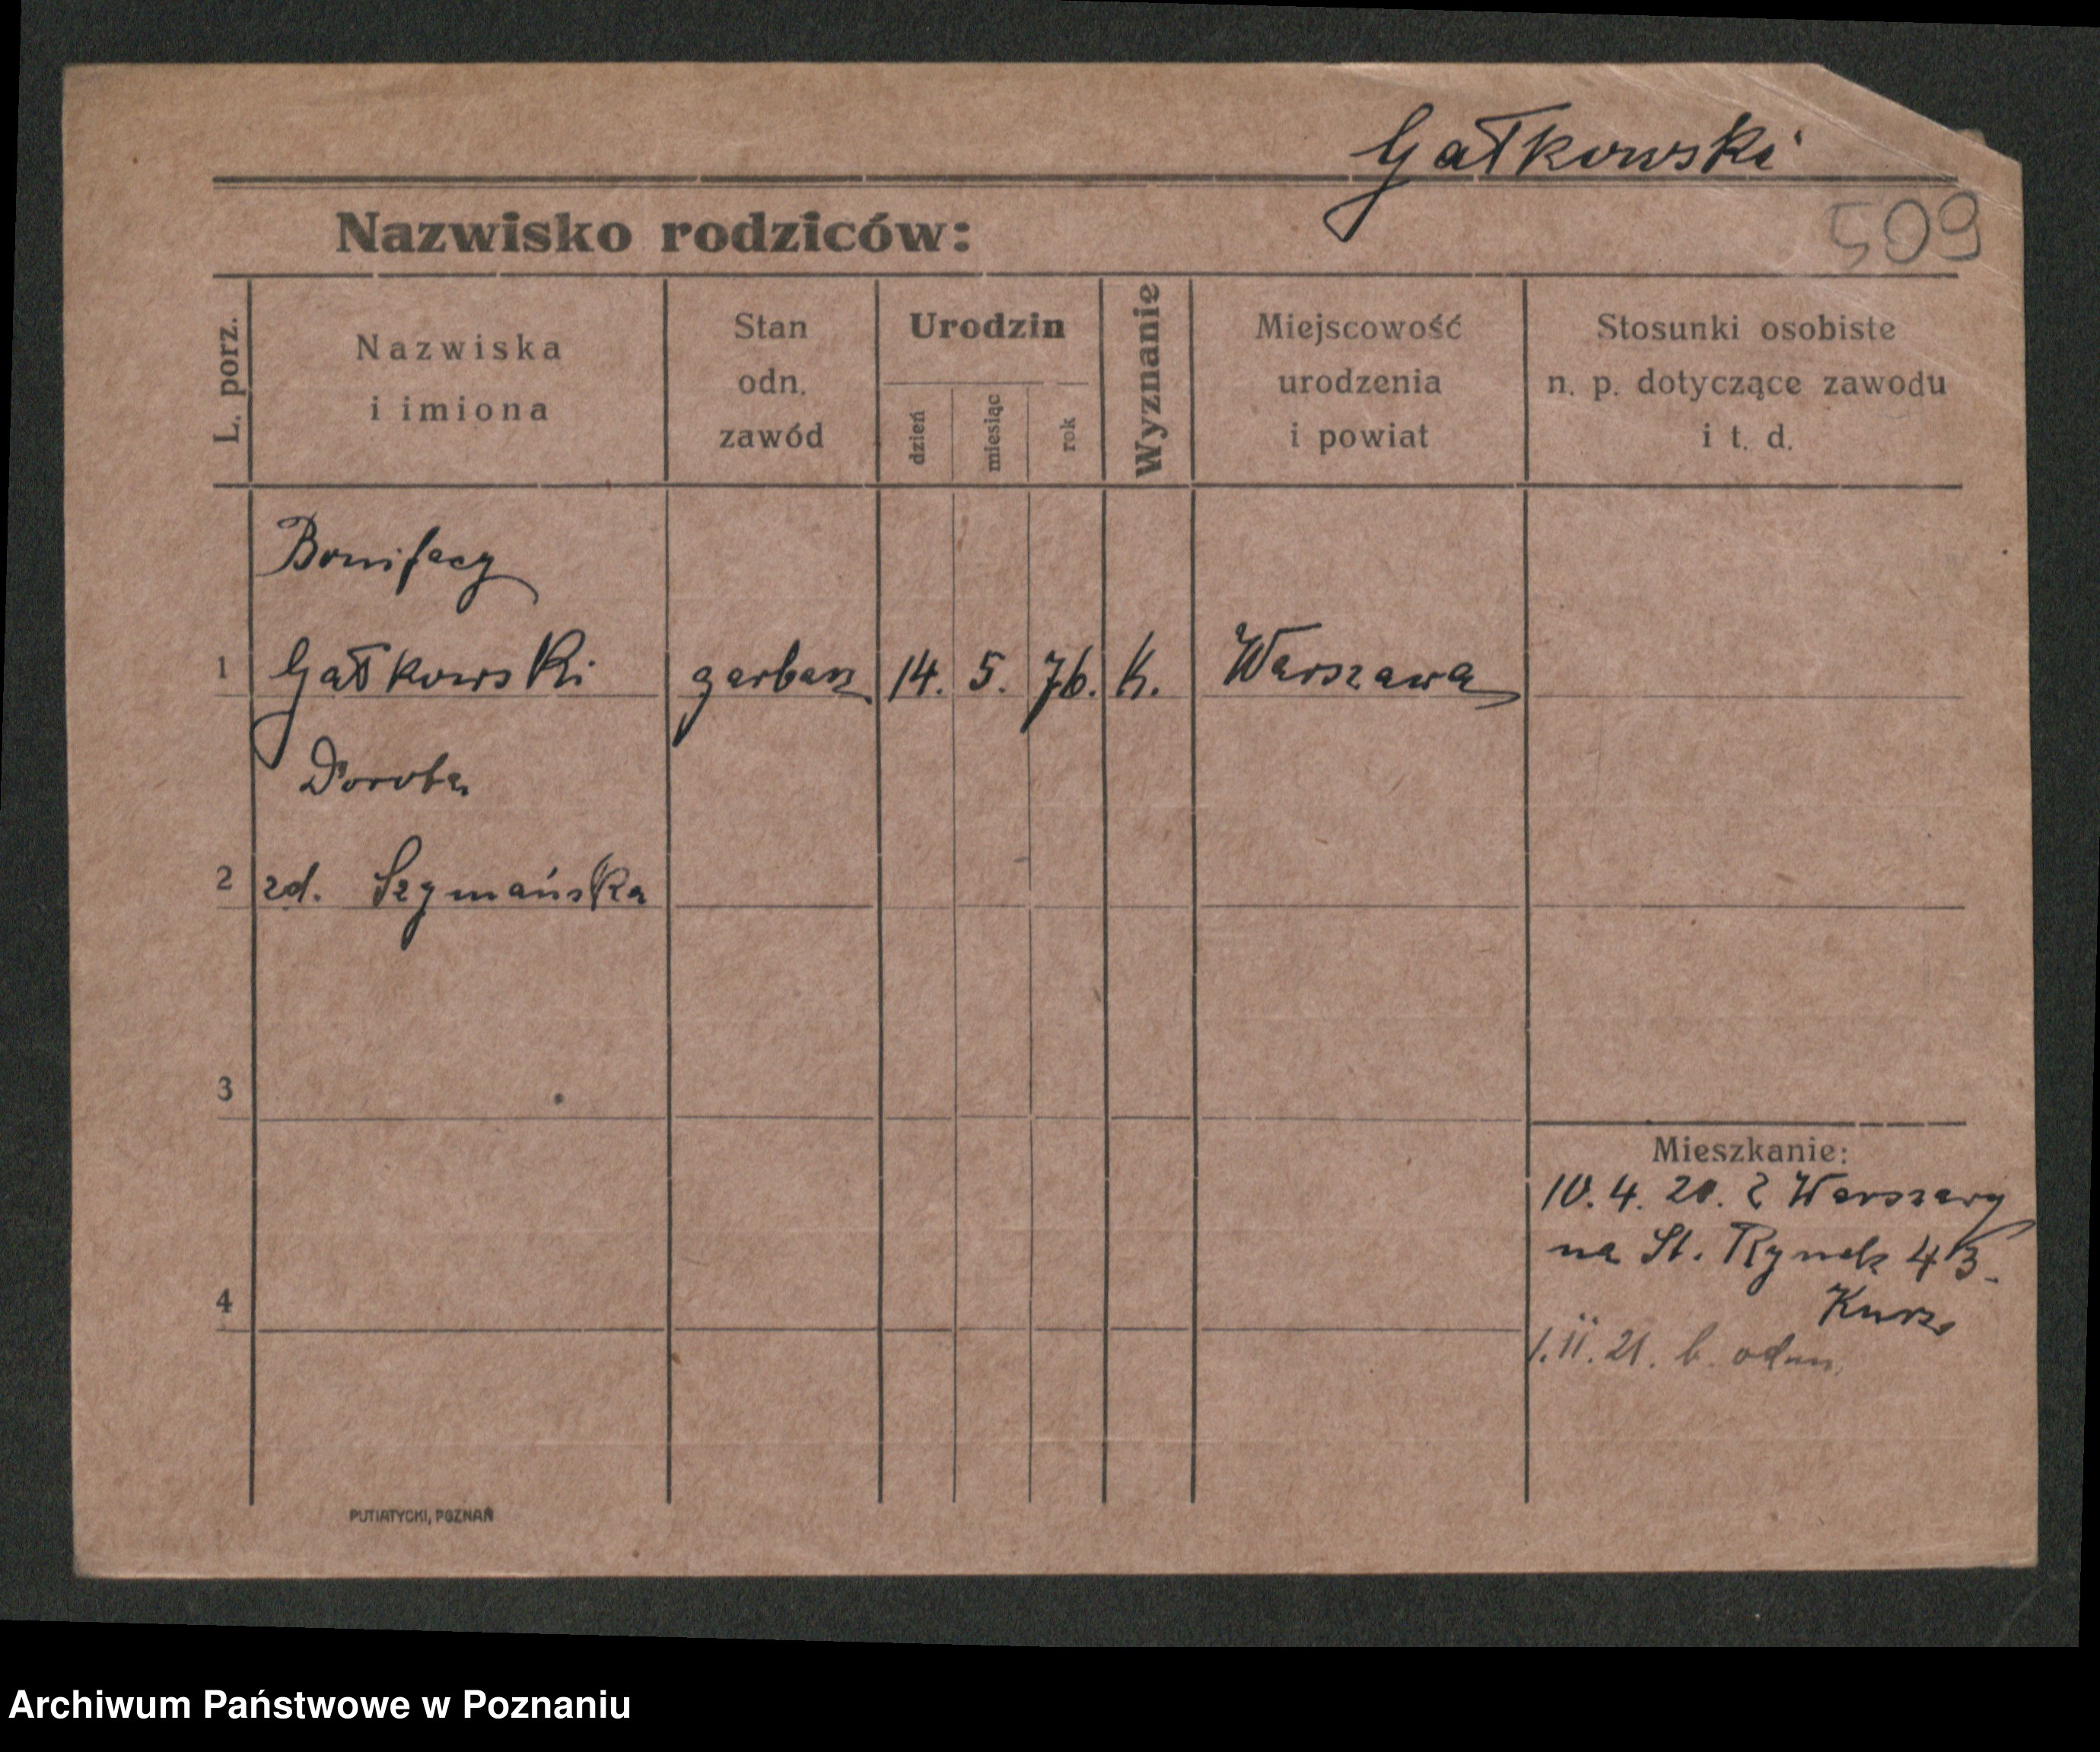 Gałkowski
Nazwisko rodziców:
509
L. porz.
Nazwiska
i imiona
Stan
odn.
zawód
Urodzin
dzień
miesiąc
rok
Wyznanie
Miejscowość
urodzenia
i powiat
Stosunki osobiste
n. p. dotyczące zawodu
i t. d.
Bonifacy
1 Gałkowski garbarz 14. 5. 76. K. Warszawa
Dorota
2 zd. Szymańska
3
Mieszkanie:
10. 4. 20. z Warszawy
na St. Rynek 43.
4
1. II. 21. b. odm.
PUTIATYCKI, POZNAŃ
Archiwum Państwowe w Poznaniu